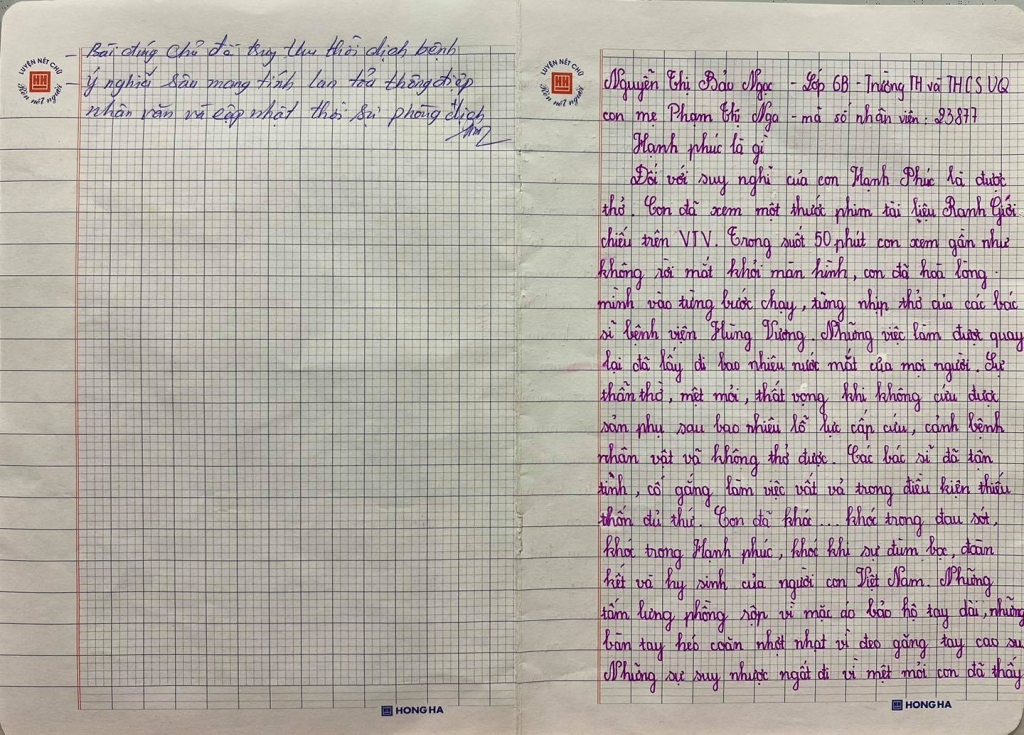 - Bài đúng chủ đề truy thu thời dịch bệnh
- Ý nghĩa sâu mang tính lan tỏa thông điệp
nhân văn và cập nhật thời sự phòng dịch
LUYỆN NÉT CHỮ
HH
Rèn nết người
HONG HA
LUYỆN NÉT CHỮ
HH
Rèn nết người
Nguyễn Thị Bảo Ngọc - Lớp 6B - Trường TH và THCS UQ
con mẹ Phạm Thị Nga - mã số nhân viên: 23877
Hạnh phúc là gì
Đối với suy nghĩ của con Hạnh Phúc là được
thở. Con đã xem một thước phim tài liệu Ranh Giới
chiếu trên VTV. Trong suốt 50 phút con xem gần như
không rời mắt khỏi màn hình, con đã hoà lòng
mình vào từng bước chạy, từng nhịp thở của các bác
sĩ bệnh viện Hùng Vương. Những việc làm được quay
lại đã lấy đi bao nhiêu nước mắt của mọi người. Sự
thẫn thờ, mệt mỏi, thất vọng khi không cứu được
sản phụ sau bao nhiêu lỗ lực cấp cứu, cảnh bệnh
nhân vật vã không thở được. Các bác sĩ đã tận
tình, cố gắng làm việc vất vả trong điều kiện thiếu
thốn đủ thứ. Con đã khóc... khóc trong đau sót,
khóc trong Hạnh phúc, khóc khi sự đùm bọc, đoàn
kết và hy sinh của người con Việt Nam. Những
tấm lưng phồng rộp vì mặc áo bảo hộ tay dài, những
bàn tay héo coăn nhợt nhạt vì đeo găng tay cao su
Những sự suy nhược ngất đi vì mệt mỏi con đã thấy
HONG HA